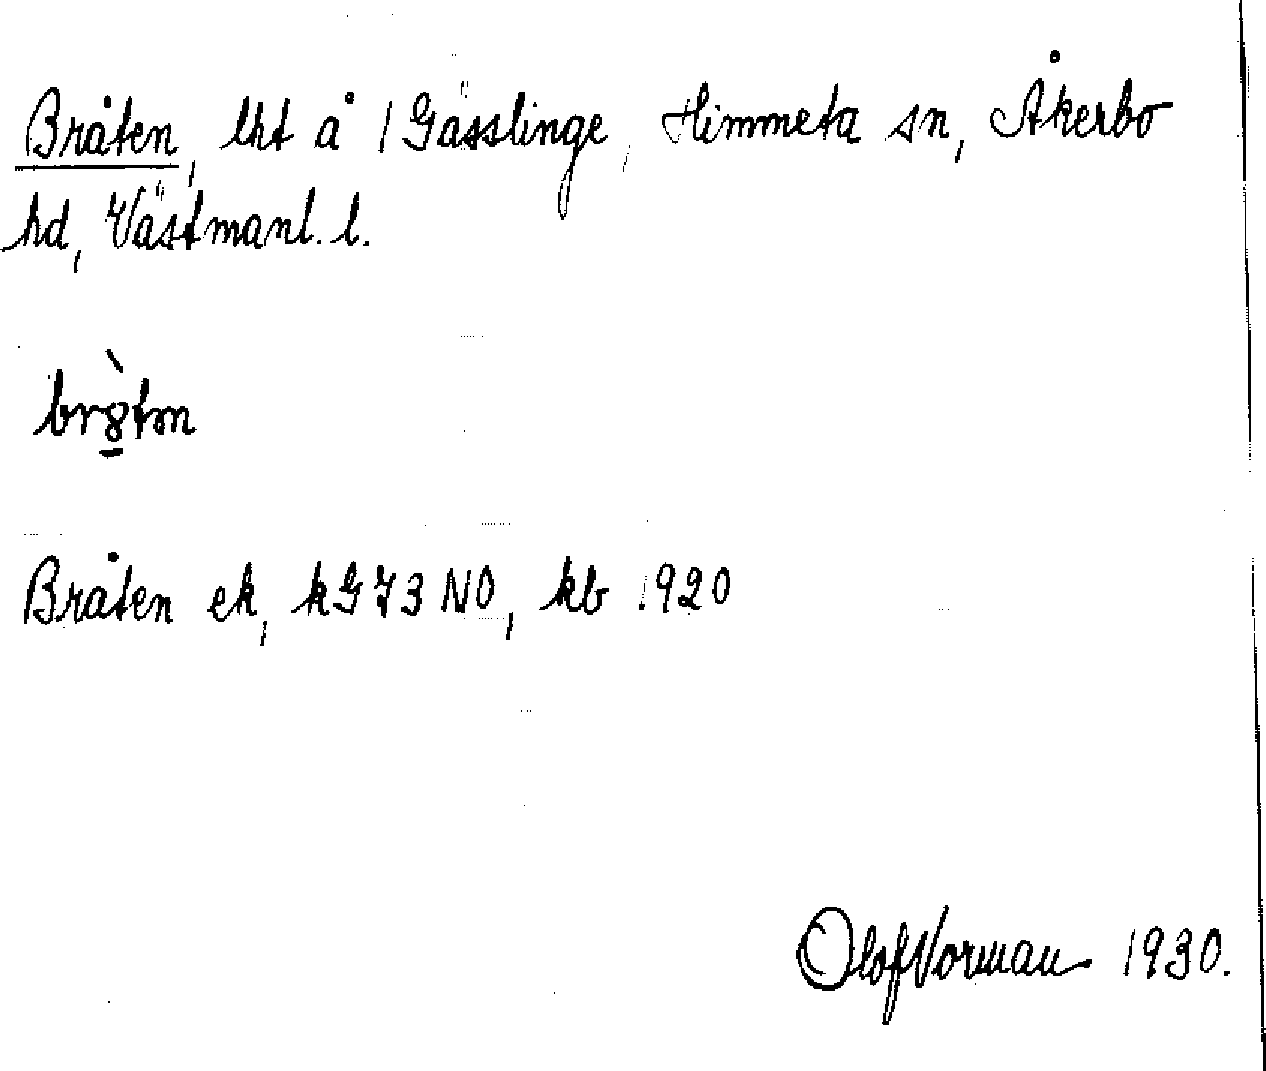 Bråten, lht å 1 Gässlinge, Himmeta sn, Åkerbo
hd, Västmanl. l.
Bråten ek, kG73 NO, kb 1920
Olof Norman 1930.